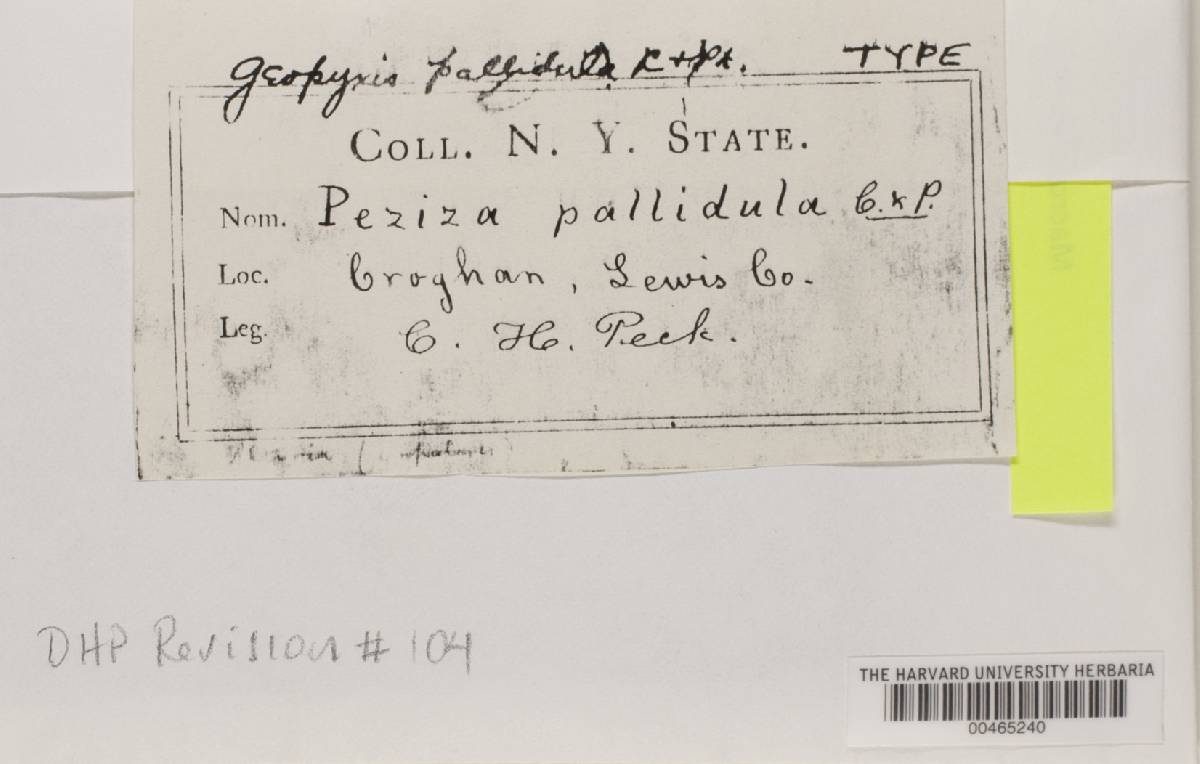 Geopyxis pallidula C + Pk. TYPE
COLL. N. Y. STATE.
Nom. Peziza pallidula C. & P.
Loc. Croghan, Lewis Co.
Leg. C. H. Peck.
DHP Revision # 104
THE HARVARD UNIVERSITY HERBARIA
00465240